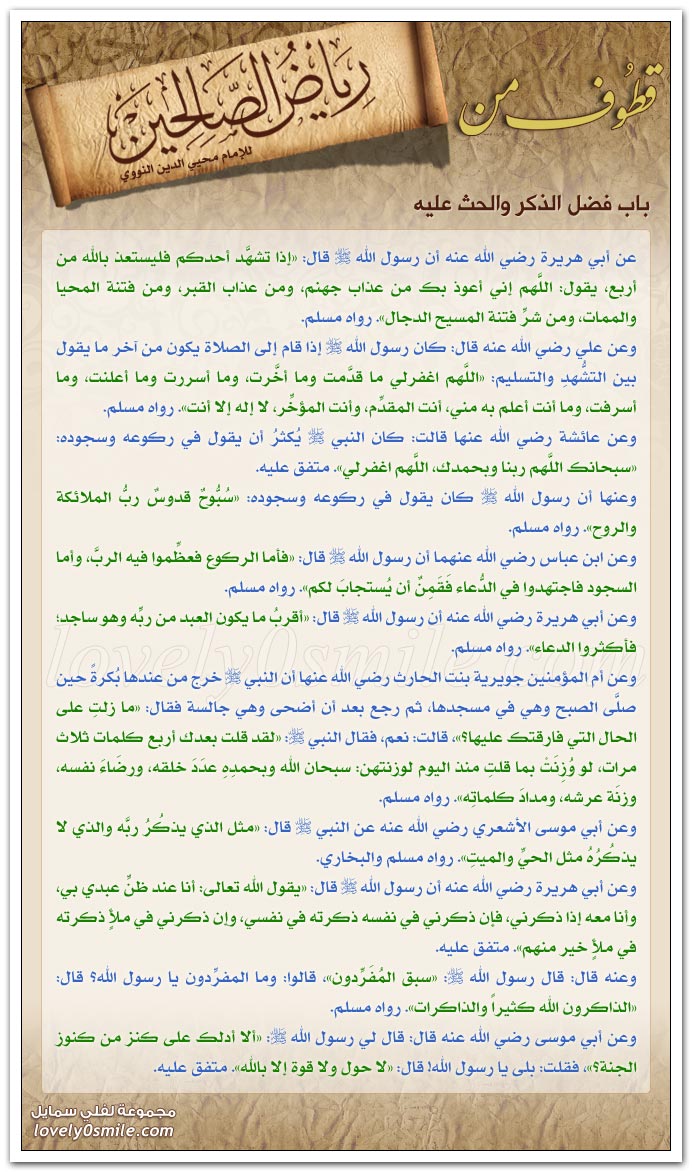 قطوف من
رِيَاضُ الصَّالِحِيْنَ
للإمام محيي الدين النووي
باب فضل الذكر والحث عليه
عن أبي هريرة رضي الله عنه أن رسول الله ﷺ قال: «إذا تشهَّد أحدكم فليستعذ بالله من
أربع، يقول: اللَّهم إني أعوذ بك من عذاب جهنم، ومن عذاب القبر، ومن فتنة المحيا
والممات، ومن شرِّ فتنة المسيح الدجال». رواه مسلم.
وعن علي رضي الله عنه قال: كان رسول الله ﷺ إذا قام إلى الصلاة يكون من آخر ما يقول
بين التشُّهدِ والتسليم: «اللَّهم اغفرلي ما قدَّمت وما أخَّرت، وما أسررت وما أعلنت، وما
أسرفت، وما أنت أعلم به مني، أنت المقدِّم، وأنت المؤخِّر، لا إله إلا أنت». رواه مسلم.
وعن عائشة رضي الله عنها قالت: كان النبي ﷺ يُكثرُ أن يقول في ركوعه وسجوده:
«سبحانك اللَّهم ربنا وبحمدك، اللَّهم اغفرلي». متفق عليه.
وعنها أن رسول الله ﷺ كان يقول في ركوعه وسجوده: «سُبُّوحٌ قدوسٌ ربُّ الملائكة
والروح». رواه مسلم.
وعن ابن عباس رضي الله عنهما أن رسول الله ﷺ قال: «فأما الركوع فعظِّموا فيه الربَّ، وأما
السجود فاجتهدوا في الدُّعاء فَقَمِنٌ أن يُستجابَ لكم». رواه مسلم.
وعن أبي هريرة رضي الله عنه أن رسول الله ﷺ قال: «أقربُ ما يكون العبد من ربِّه وهو ساجد؛
فأكثروا الدعاء». رواه مسلم.
وعن أم المؤمنين جويرية بنت الحارث رضي الله عنها أن النبي ﷺ خرج من عندها بُكرةً حين
صلَّى الصبح وهي في مسجدها، ثم رجع بعد أن أضحى وهي جالسة فقال: «ما زلتِ على
الحال التي فارقتك عليها؟»، قالت: نعم، فقال النبي ﷺ: «لقد قلت بعدك أربع كلمات ثلاث
مرات، لو وُزِنَتْ بما قلتِ منذ اليوم لوزنتهن: سبحان الله وبحمدِهِ عدَدَ خلقه، ورضَاءَ نفسه،
وزنَة عرشه، ومدادَ كلماتِه». رواه مسلم.
وعن أبي موسى الأشعري رضي الله عنه عن النبي ﷺ قال: «مثل الذي يذكُرُ ربَّه والذي لا
يذكُرُهُ مثل الحيِّ والميتِ». رواه مسلم والبخاري.
وعن أبي هريرة رضي الله عنه أن رسول الله ﷺ قال: «يقول الله تعالى: أنا عند ظنِّ عبدي بي،
وأنا معه إذا ذكرني، فإن ذكرني في نفسه ذكرته في نفسي، وإن ذكرني في ملأٍ ذكرته
في ملأٍ خير منهم». متفق عليه.
وعنه قال: قال رسول الله ﷺ: «سبق المُفَرِّدون»، قالوا: وما المفرِّدون يا رسول الله؟ قال:
«الذاكرون الله كثيراً والذاكرات». رواه مسلم.
وعن أبي موسى رضي الله عنه قال: قال لي رسول الله ﷺ: «ألا أدلك على كنز من كنوز
الجنة؟»، فقلت: بلى يا رسول الله! قال: «لا حول ولا قوة إلا بالله». متفق عليه.
lovely0smile.com
مجموعة لفلي سمايل
lovely0smile.com